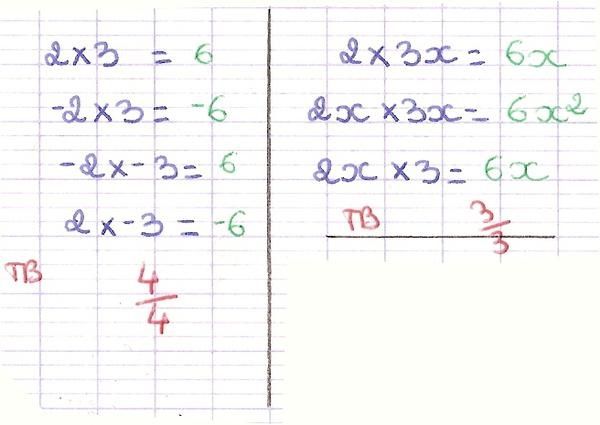 2 × 3 = 6
-2 × 3 = -6
-2 × -3 = 6
2 × -3 = -6
TB
4/4
2 × 3x = 6x
2x × 3x = 6x²
2x × 3 = 6x
TB
3/3